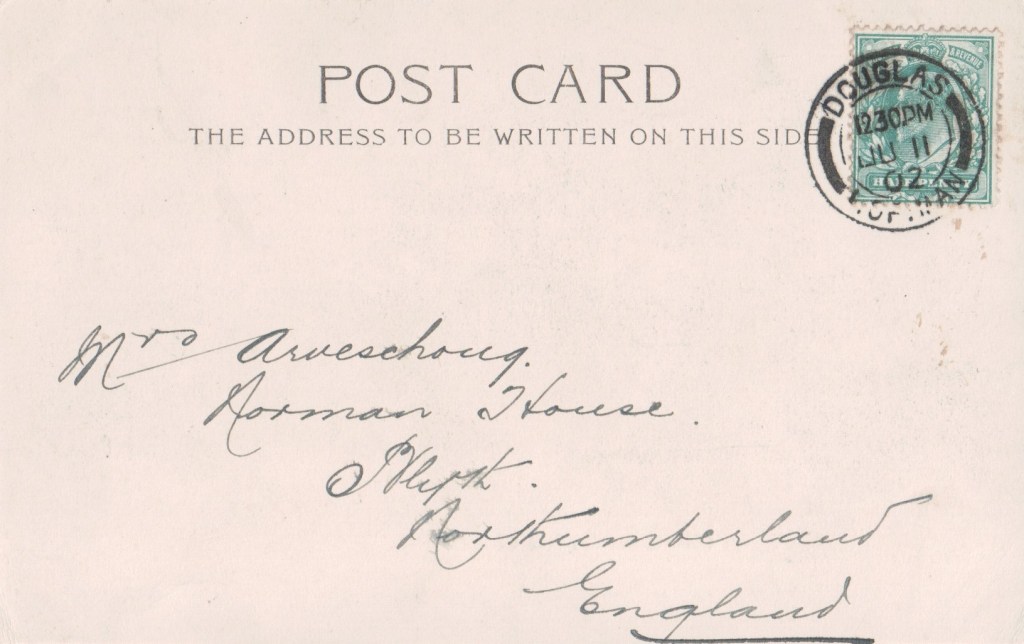 POST CARD
THE ADDRESS TO BE WRITTEN ON THIS SIDE
& REVENUE
DOUGLAS
12.30PM
JU 11
02
I. OF. MAN
Mrs Arveschoug.
Norman House.
Blyth.
Northumberland
England